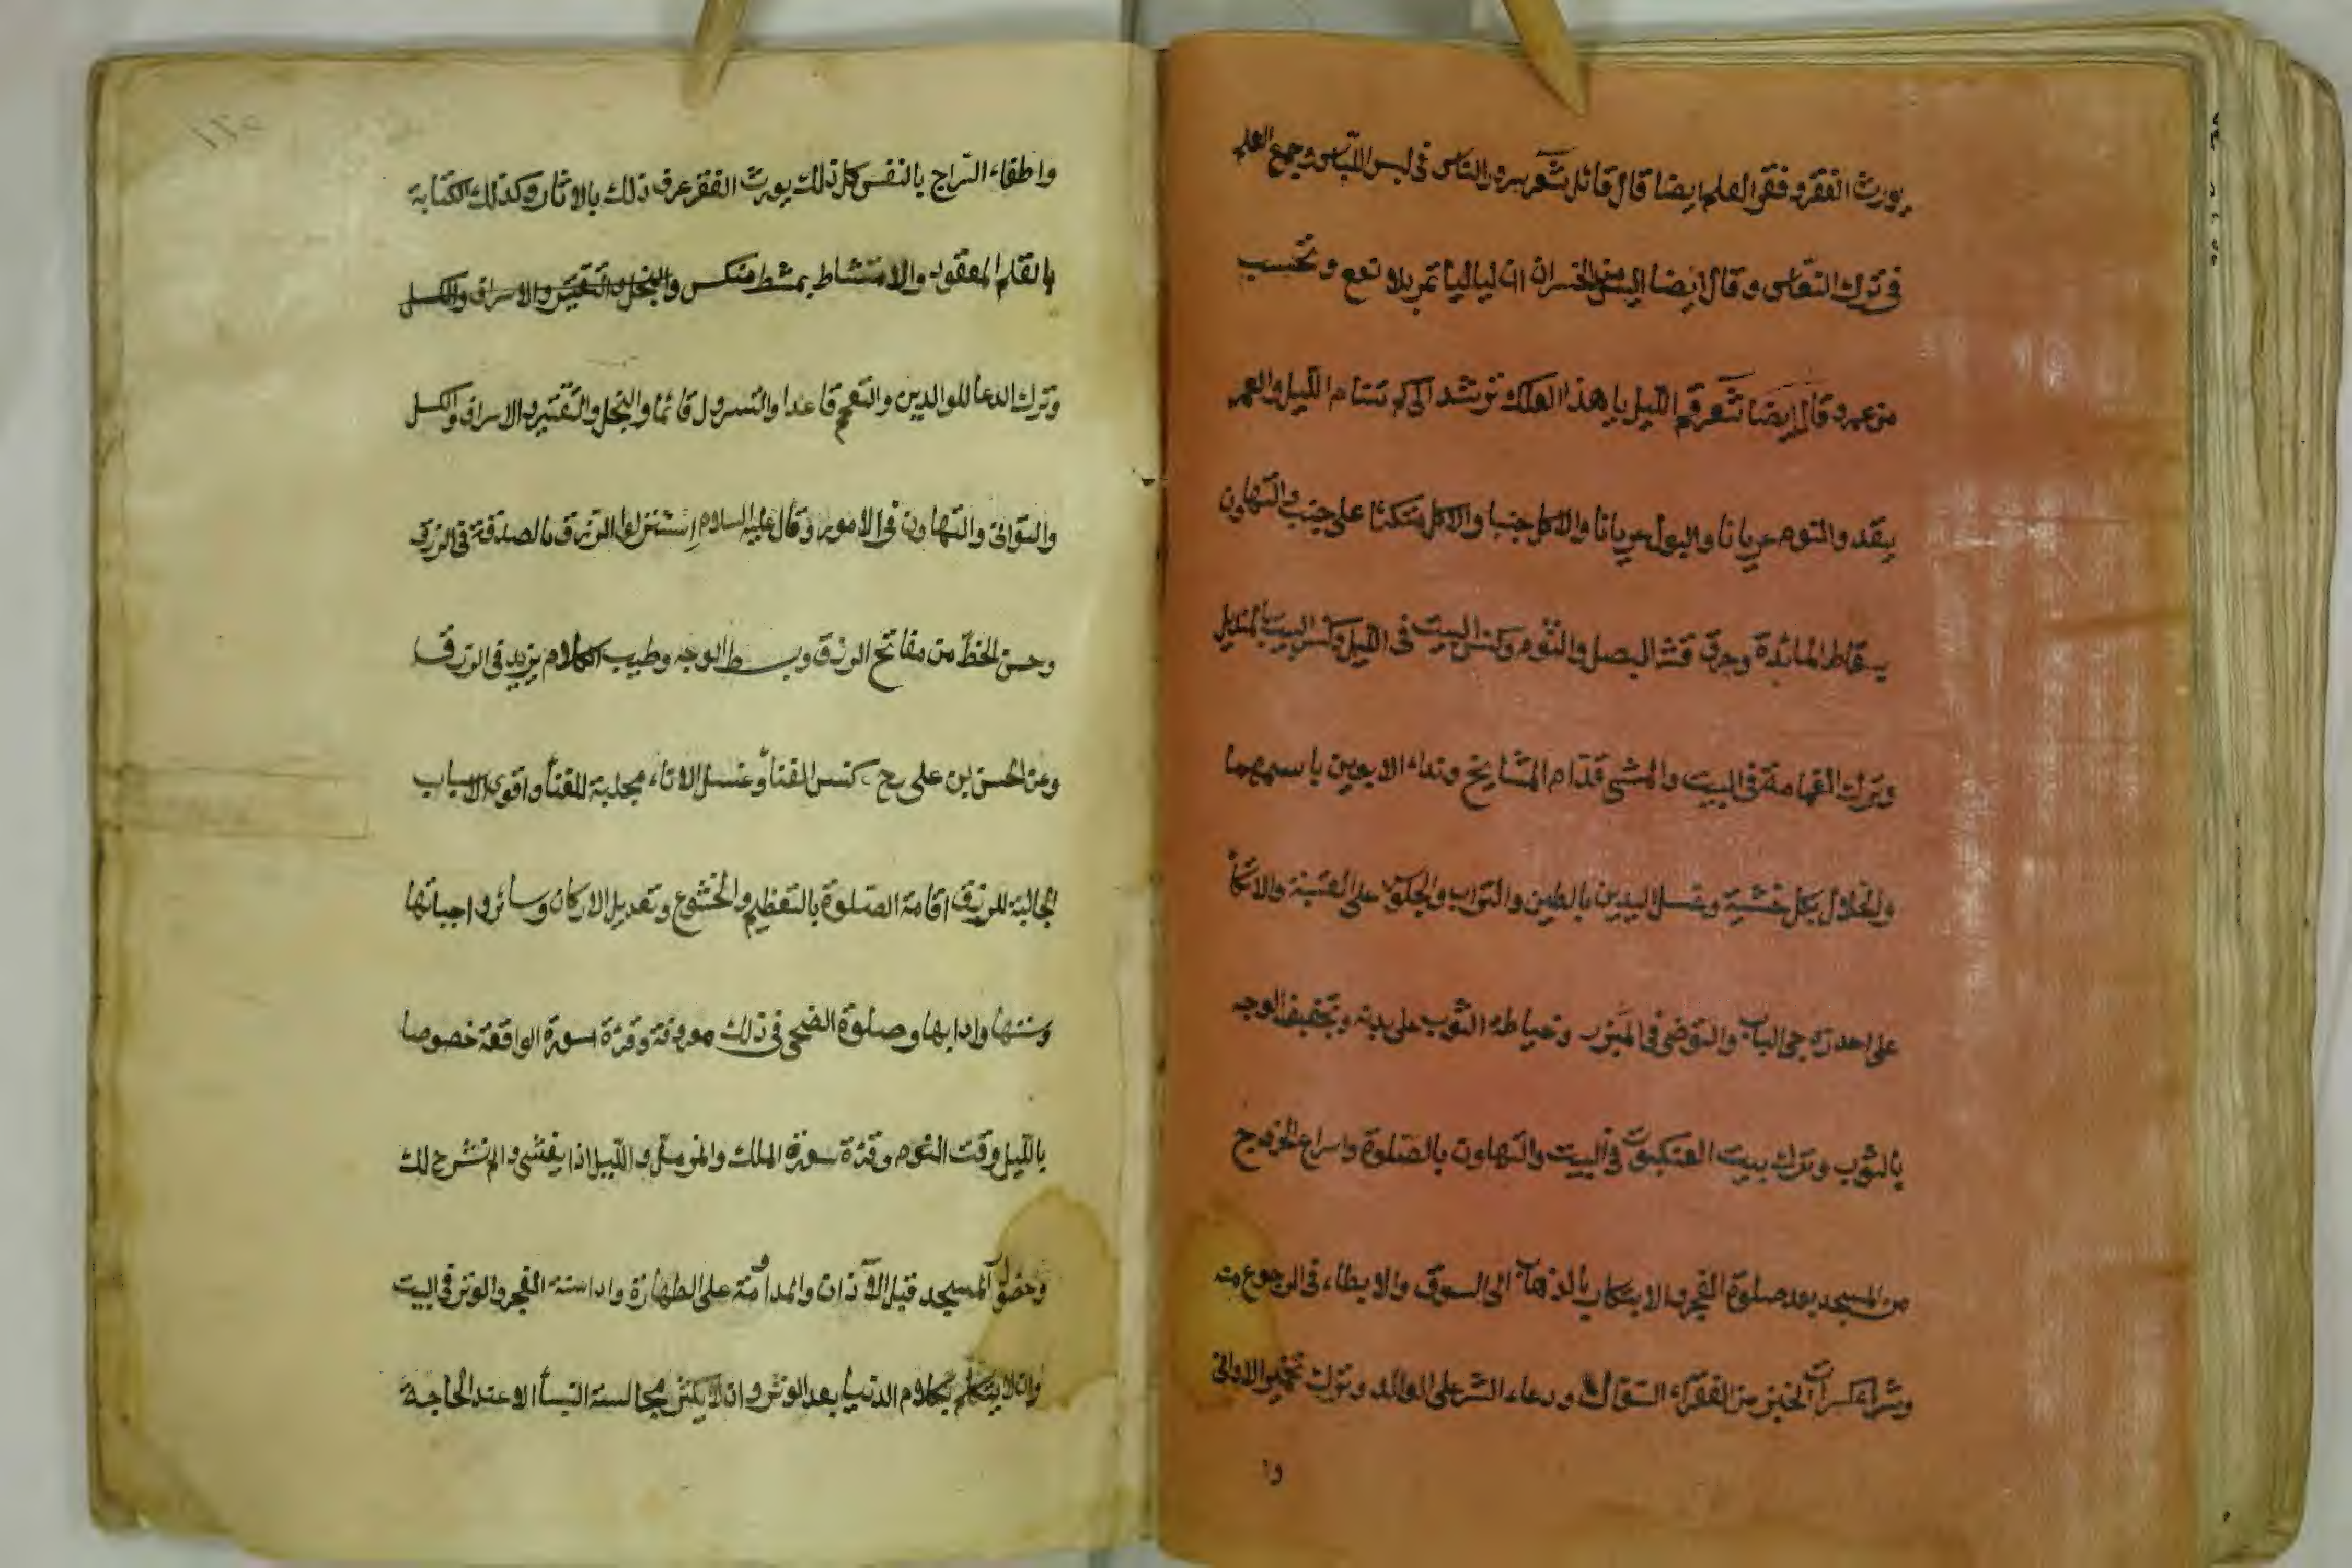 يورث الفقر وفقر العلم ايضا قال قائل شعر سرور الناس فى لبس اللباس وجمع العلم
فى ترك النعاس وقال ايضا اليس من الخسران ان لياليا تمر بلا نفع وتحسب
من عمر وقال ايضا شعر قم الليل يا هذا لعلك ترشد الى كم تنام الليل والعمر
ينفد والنوم عريانا والبول عريانا والاكل جنبا والاكل متكئا على جنب والتهاون
بسقاط المائدة وحرق قشر البصل والثوم وكنس البيت فى الليل وكنس البيت بالمنديل
وترك القمامة فى البيت والمشى قدام المشايخ ونداء الابوين باسمهما
والخلال بكل خشبة وغسل اليدين بالطين والتراب والجلوس على العتبة والاتكأ
على احد زوجى الباب والتوضى فى المبرز وخياطة الثوب على بدنه وتجفيف الوجه
بالثوب وترك بيت العنكبوت فى البيت والتهاون بالصلوة واسراع الخروج
من المسجد بعد صلوة الفجر والابتكار بالذهاب الى السوق والابطاء فى الرجوع منه
وشراء كسرات الخبز من الفقراء السؤال ودعاء الشر على الوالد وترك تخمير الاوانى
وا
واطفاء السراج بالنفس كل ذلك يورث الفقر عرف ذلك بالاثار وكذلك الكتابة
بالقلم المعقود والامتشاط بمشط منكس والبخل والتقتير والاسراف والكسل
وترك الدعا للوالدين والتعمم قاعدا والتسرول قائما والبخل والتقتير والاسراف والكسل
والتوانى والتهاون فى الامور وقال عليه السلام استنزلوا الرزق بالصدقة فى الرزق
وحسن الخط من مفاتح الرزق وبسط الوجه وطيب الكلام يزيد فى الرزق
وعن الحسن بن على رح كنس الفنأ وغسل الاناء مجلبة للغنأ واقوى الاسباب
الجالبة للرزق اقامة الصلوة بالتعظيم والخشوع وتعديل الاركان وسائر واجباتها
وسننها وادابها وصلوة الضحى فى ذلك معروفة وقرة سورة الواقعة خصوصا
بالليل وقت النوم وقرة سورة الملك والمزمل والليل اذا يغشى والم نشرح لك
وحضور المسجد قبل الآذان والمداومة على الطهارة واداء سنة الفجر والوتر فى البيت
وان لا يتكلم بكلام الدنيا بعد الوتر وان لا يكثر مجالسة النسأ الا عند الحاجة